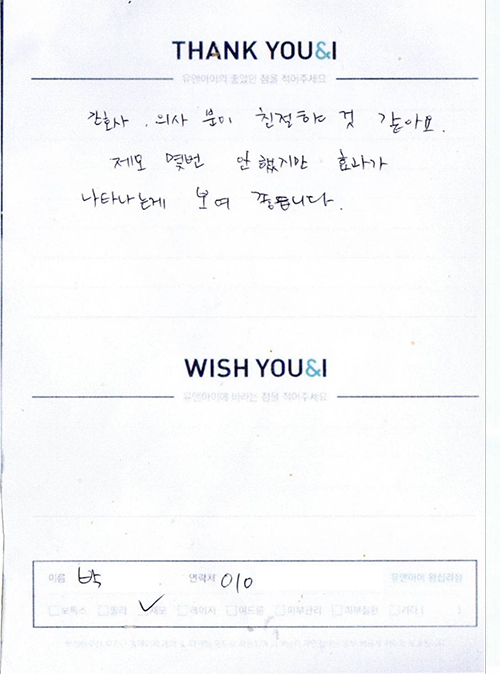 THANK YOU&I
유앤아이의 좋았던 점을 적어주세요
간호사, 의사 분이 친절하 것 같아요.
제모 몇번 안했지만 효과가
나타나는게 보여 좋습니다.
WISH YOU&I
유앤아이에 바라는 점을 적어주세요
이름 박 연락처 010 유앤아이 왕십리점
보톡스 필러 제모 레이저 여드름 피부관리 피부질환 기타 ( )